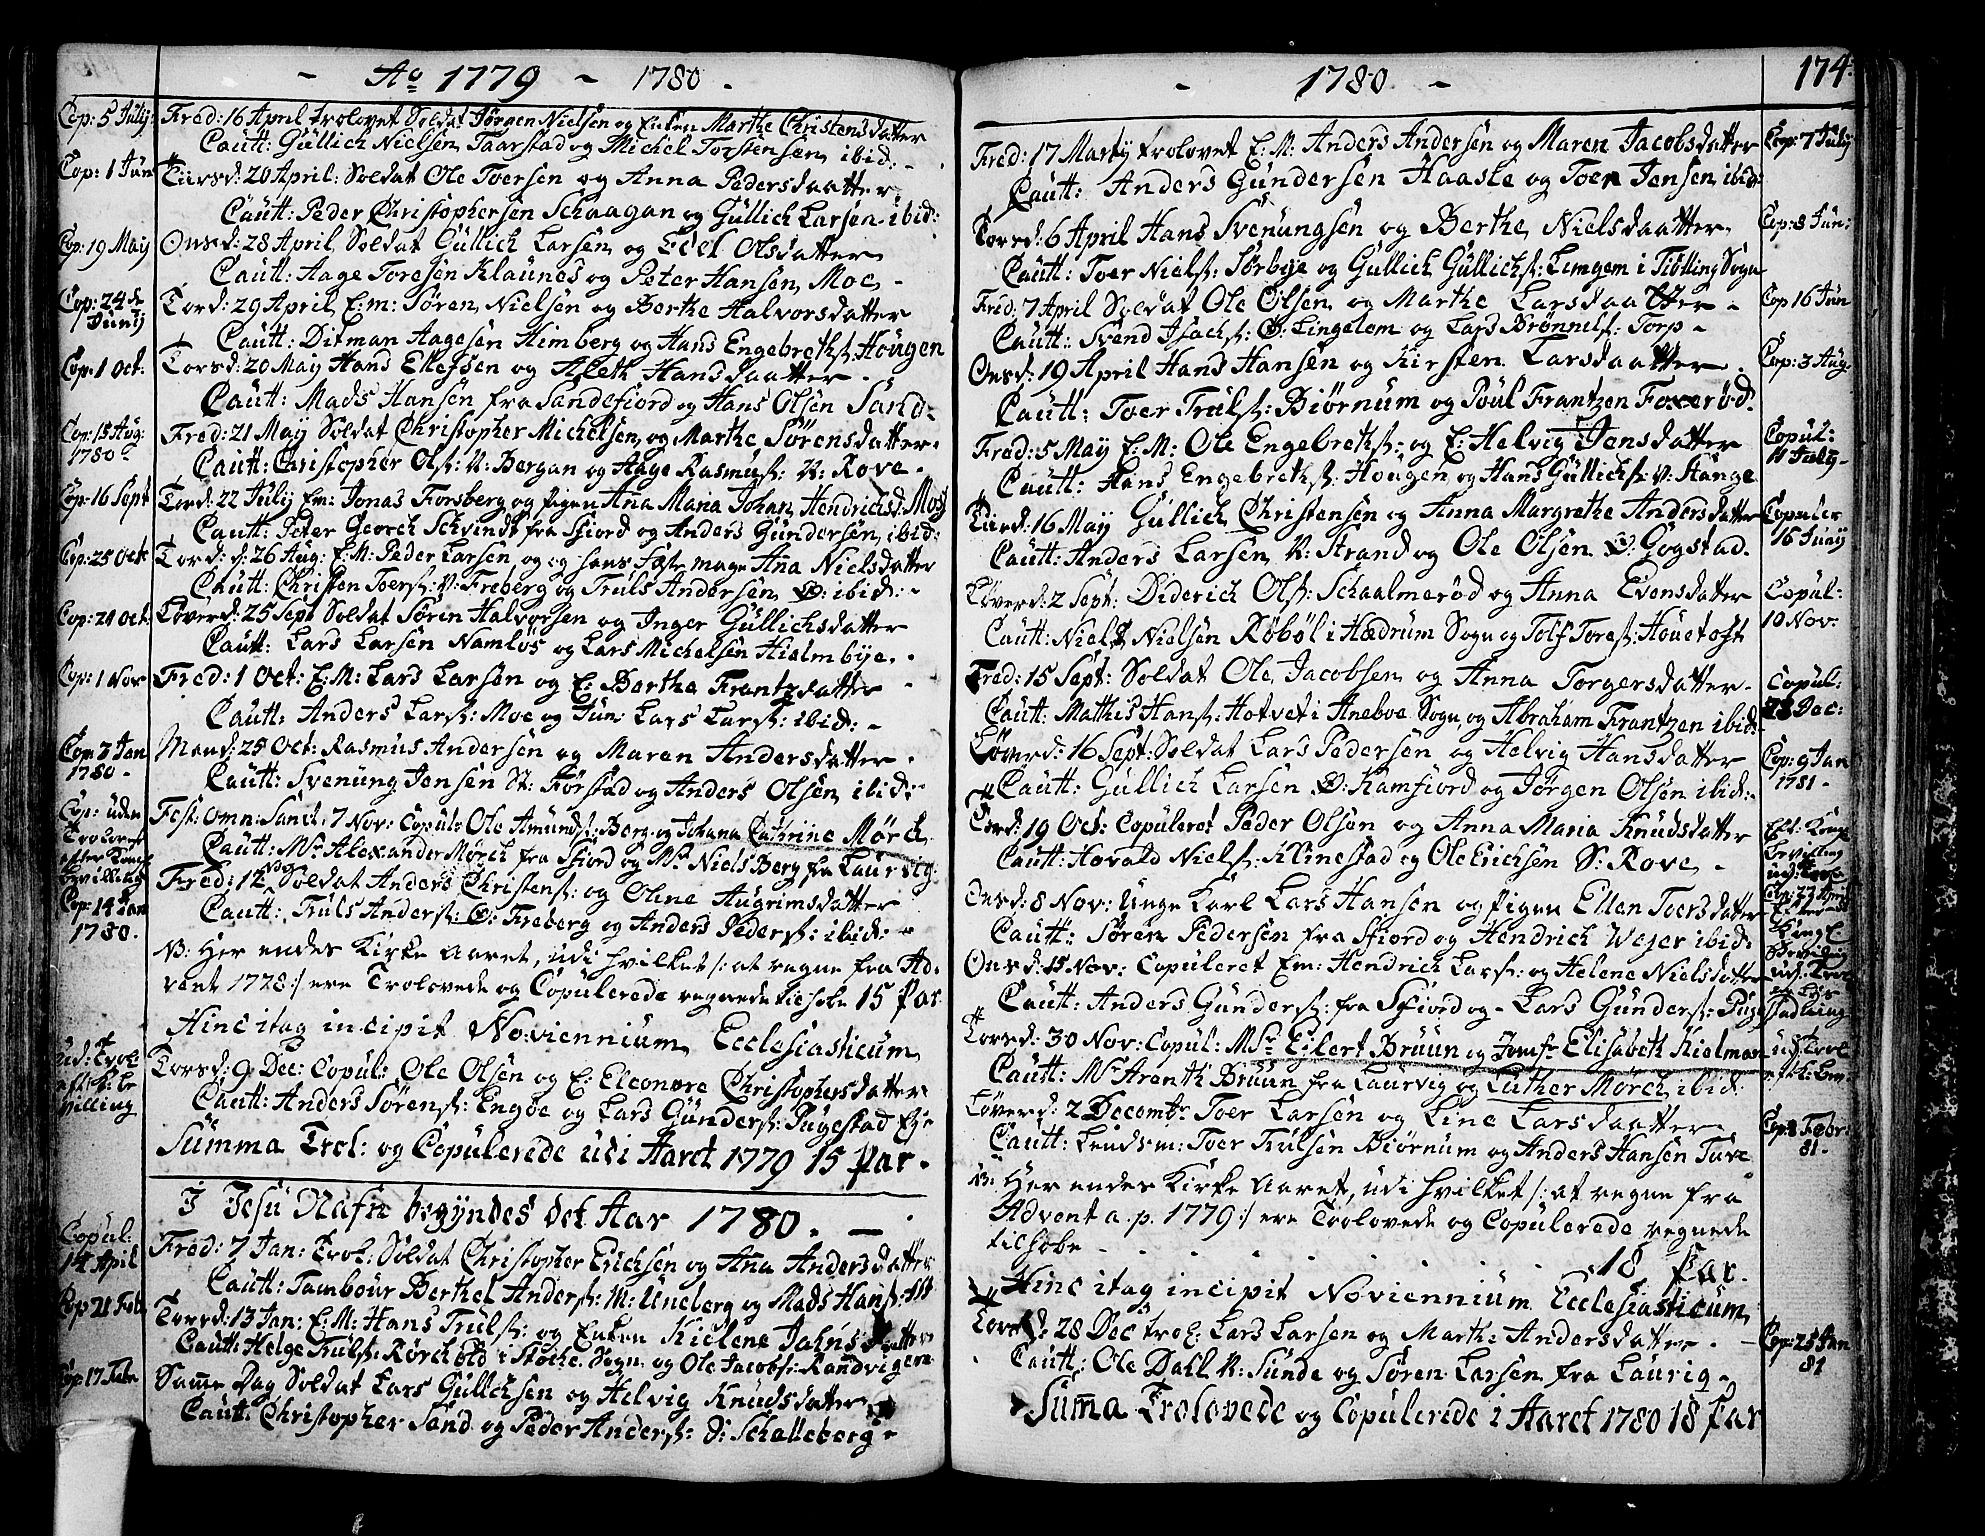 - Ao 1779 - 1780.
Cop: 5 Julij
Fred: 16 April trolovet Soldat Jørgen Nielsen og Enken Marthe Christensdatter
Cautt: Gullich Nielsen Taarstad og Michel Torstensen ibid: -
Cop: 1 Jun
Tirsd: 20 April: Soldat Ole Toersen og Anna Pedersdaatter
Cautt: Peder Christophersen Schaagan og Gullich Larsen ibid:
Cop: 19 May
Onsd: 28 April Soldat Gullich Larsen og Edel Olsdatter
Cautt: Aage Toresen Klaunes og Peter Hansen Moe -
Cop: 24de Junij
Tord: 29 April E:m: Søren Nielsen og Berthe Halvorsdatter
Cautt: Ditman Aagesen Himberg og Hans Engebrethsn: Hougen
Cop: 1 Oct.
Torsd: 20 May Hans Ellefsen og Aleth Hansdaatter.
Cautt: Mads Hansen fra Sandefiord og Hans Olsen Sand:
Cop: 15 Aug: 1780
Fred: 21 May Soldat Christopher Michelsen og Marthe Sørensdatter.
Cautt: Christopher Ols: N: Bergan og Aage Rasmus: N: Rove.
Cop: 16 Sept
Tord: 22 Julij Em: Jonas Forsberg og pigen Ana Maria Johan Hendrichsd: Moss
Cautt: Peter Georch Schvindt fra Sfiord og Anders Gundersen ibid:
Cop: 25 Oct
Tord: d: 26 Aug: E:M: Peder Larsen og hans Fæstemage Ana Nielsdatter
Cautt: Christen Toers: V: Freberg og Truls Andersen Ø: ibid: -
Cop: 20 Oct.
Løverd: 25 Sept Soldat Søren Halvorsen og Inger Gullichsdatter
Cautt: Lars Larsen Namløs og Lars Michelsen Hielmbye.
Cop: 1 Nov
Fred: 1 Oct: E:M: Lars Larsen og E: Berthe Frantzdatter
Cautt: Anders Lars: Moe og Jun: Lars Lars: ibid: -
Cop: 3 Jan 1780.
Mand: 25 Oct: Rasmus Andersen og Maren Andersdatter.
Cautt: Svenung Jensen St: Førstad og Anders Olsen ibid: -
Cop: uden Trolovelse efter Kongl Bevilling
Fest: Omn: Sanct: 7 Nov: Copul: Ole Amunds: Berg og Johana Cathrine Mørch
Cautt: Mr Alexander Mørch fra Sfiord og Mr Niels Berg fra Laurvig:
Cop: 14 Jan 1780.
Fred: 12 Nov Soldat Anders Christens: og Oline Augrimsdatter
Cautt: Truls Anders: Ø: Freberg og Anders Peders: ibid: -
NB: Her endes Kirke Aaret, udi hvilket /: at regne fra Ad-
vent 1778 :/ ere Trolovede og Copulerede regnede tilhobe 15 Par
Hinc itaq incipit Noviennium Ecclesiasticum
ud: Trol: eft: K: Bevilling
Torsd: 9 Dec: Copul: Ole Olsen og E: Eleonore Christophersdatter
Cautt: Anders Sørens: Engøe og Lars Gunders: Pugestad Eje
Summa Trol: og Copulerede udi Aaret 1779 15 Par.
I Jesu Nafn begyndes det Aar 1780. -
Copul: 14 April
Fred: 7 Jan: Trol: Soldat Christopher Erichsen og Ana Andersdatter
Cautt: Tambour Berthel Anders: M: Uneberg og Mads Hans: ibid
Cop 21 Feb
Torsd: 13 Jan: E:M: Hans Truls: og Enken Kielene Jahnsdatter
Cautt: Helge Truls: Rørchold i Stoche Sogn og Ole Jacobs: Randvigen
Cop: 17 Febr
Samme Dag Soldat Lars Gullichsen og Helvig Knudsdatter
Cautt: Christopher Sand og Peder Anders: S: Schalleberg -
- 1780 -
174.
Fred: 17 Martij trolovet E:M: Anders Andersen og Maren Jacobsdatter
Cop: 7 Julij
Cautt: Anders Gundersen Haasle og Toer Jensen ibid:
Torsd: 6 April Hans Svenungsen og Berthe Nielsdaatter
Cop: 8 Jun:
Cautt: Toer Niels: Sørbye og Gullich Gullichs: Limgem i Tiølling Sogn
Fred: 7 April Soldat Ole Olsen og Marthe Larsdaatter -
Cop 16 Jun
Cautt: Svend Isachs: Ø: Lingelem og Lars Brønnels: Torp -
Onsd: 19 April Hans Hansen og Kirsten Larsdaatter.
Cop: 3 Aug.
Cautt: Toer Truls: Biørnum og Poul Frantzen Foxerød.
Fred: 5 May E:M: Ole Engebreths: og E: Helvig Jensdatter
Copul: 11 July -
Cautt: Hans Engebreths: Hougen og Hans Gullichs: V: Hange
Tirsd: 16 May Gullich Christensen og Anna Margrethe Andersdatter
Copuler 16 Junij
Cautt: Anders Larsen N: Strand og Ole Olsen Ø: Gogstad.
Løverd: 2 Sept: Diderich Ols: Schaalmerød og Anna Evensdatter
Copul: 10 Nov.
Cautt: Niels Nielsen Røbøl i Hædrum Sogn og Tolf Tores: Houetoft
Fred: 15 Sept: Soldat Ole Jacobsen og Anna Torgersdatter.
Copul: 28 Dec:
Cautt: Mathis Hans: Hotvet i Aneboe Sogn og Abraham Frantzen ibid:
Løverd: 16 Sept: Soldat Lars Pedersen og Helvig Hansdatter
Cop: 9 Jan 1781.
Cautt: Gullich Larsen Ø: Kamfiord og Jørgen Olsen ibid: -
Tord: 19 Oct: Copuleret Peder Olsen og Anna Maria Knudsdatter
Eft: Kongl Bevilling ud: Trol:
Cautt: Havald Niels: Klinestad og Ole Erichsen S: Rove -
Onsd: 8 Nov: Unge Karl Lars Hansen og pigen Ellen Toersdatter
Cop: 27 April
Cautt: Søren Pedersen fra Sfiord og Hendrich Wejer ibid:
Onsd: 15 Nov: Copuleret Em: Hendrich Lars: og Helene Nielsdatter
Kongl Bevilling ud: Trol
Cautt: Anders Gunders: fra Sfiord og Lars Gunders: Puge
Torsd: 30 Nov: Copul: Msr Eilert Bruun og Jomfr Elisabeth Kielman
ud: Trol
Cautt: Mr Arenth Bruun fra Laurvig og Luther Mørch ibid:
Løverd: 2 Decembr Toer Larsen og Line Larsdaatter
Cop: 8 Febr: 81.
Cautt: Lendsm: Toer Trulsen Biørnum og Anders Hansen Tuve
NB: Her endes Kirke Aaret, udi hvilket /: at regne fra
Advent a. p. 1779 :/ ere Trolovede og Copulerede regnede
tilhobe . . . . . . 18 Par.
Hinc itaq incipit Noviennium Ecclesiasticum
Torsd: 28 Dec trol: Lars Larsen og Marthe Andersdatter. -
Cop: 25 Jan 81
Cautt: Ole Dahl N: Sunde og Søren Larsen fra Laurig -
Suma Trolovede og Copulerede i Aaret 1780 18 Par